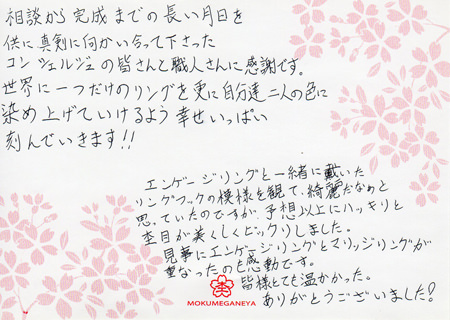 相談から完成までの長い月日を
供に真剣に向かい合って下さった
コンシェルジュの皆さんと職人さんに感謝です。
世界に一つだけのリングを更に自分達二人の色に
染め上げていけるよう幸せいっぱい
刻んでいきます!!
エンゲージリングと一緒に戴いた
リングフックの模様を観て、綺麗だなぁと
思っていたのですが、予想以上にハッキリと
杢目が美しくビックリしました。
見事にエンゲージリングとマリッジリングが
重なったのも感動です。
皆様とても温かかった。
ありがとうございました!
MOKUMEGANEYA